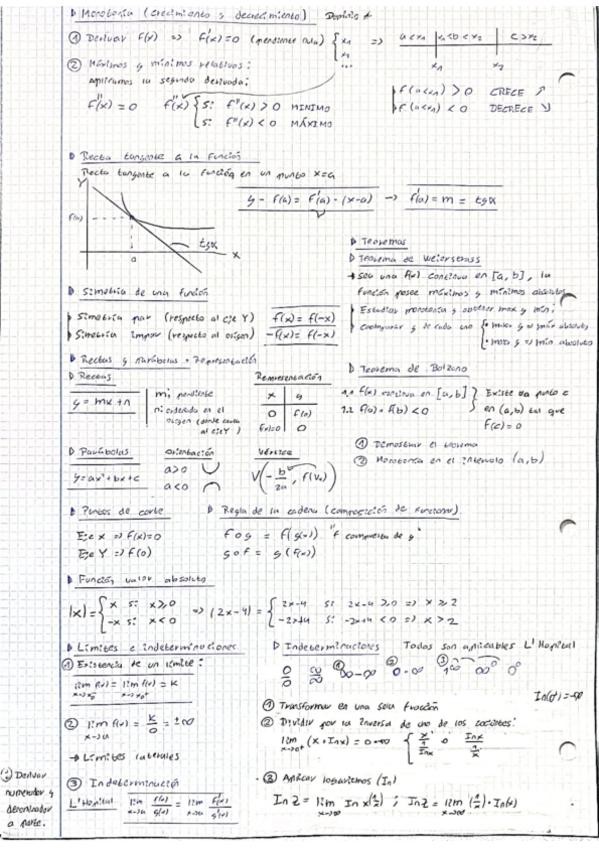 ▷ Monotonía (crecimiento y decrecimiento) Dominio
① Derivar f(x) => f'(x)=0 (pendiente nula) { x₁ x₂ ... => a<x₁ | x₁<b<x₂ | c>x₂
x₁ x₂
② Máximos y mínimos relativos:
aplicamos la segunda derivada:
f''(x) = 0 f''(x) { Si f''(x) > 0 MINIMO
Si f''(x) < 0 MÁXIMO
f'(a<x₁) > 0 CRECE ↗
f'(a<x₁) < 0 DECRECE ↘
▷ Recta tangente a la función
Recta tangente a la función en un punto x=a
y - f(a) = f'(a) · (x-a) -> f'(a) = m = tgα
y
f(a)
tgα
x
a
▷ Teoremas
▷ Teorema de Weierstrass
→ Sea una f(x) continua en [a,b], la
función posee máximos y mínimos absolutos
Estudios monotonía y obtener max y min;
comparar y de cada uno { • max y => máx absoluto
• max y => mín absoluto
▷ Simetría de una función
Simetría par (respecto al eje Y) f(x) = f(-x)
Simetría impar (respecto al origen) -f(x) = f(-x)
▷ Rectas y parábolas + representación
▷ Rectas
y = mx + n
m: pendiente
n: ordenada en el
origen (donde corta
al eje Y)
Representación
x | y
0 | f(0)
f(x)=0 | 0
▷ Teorema de Bolzano
1.1 f(x) continua en [a,b] } Existe un punto c
1.2 f(a) · f(b) < 0 en (a,b) tal que
f(c) = 0
① Demostrar el teorema
② Monotonía en el intervalo (a,b)
▷ Parábolas Orientación Vértice
y = ax² + bx + c
a>0
a<0
V(-b/2a, f(Vx))
▷ Puntos de corte
Eje X => f(x)=0
Eje Y => f(0)
▷ Regla de la cadena (composición de funciones).
fog = f(g(x)) "f compuesta de g"
gof = g(f(x))
▷ Función valor absoluto
|x| = { x si x≥0
-x si x<0
=> |2x-4| = { 2x-4 si 2x-4 ≥0 => x≥2
-2x+4 si -2x+4 <0 => x>2
▷ Límites e indeterminaciones
① Existencia de un límite:
lim f(x) = lim f(x) = K
② lim f(x) = K/0 = ±∞
x→a
→ Límites laterales
③ Indeterminación
L'Hôpital lim f(x)/g(x) = lim f'(x)/g'(x)
x→a x→a
Derivar
numerador y
denominador
a parte.
▷ Indeterminaciones Todas son aplicables L'Hopital
0/0 ∞/∞ ① ∞-∞ ② 0·∞ ③ 1^∞ ∞⁰ 0⁰
① Transformar en una sola fracción
ln(0⁺) = -∞
② Dividir por la inversa de uno de los cocientes:
lim (x · ln x) = 0·∞ { x / 1/ln x o ln x / 1/x
x→0⁺
③ Aplicar logaritmos (ln)
ln Z = lim ln x^(1/x) ; ln Z = lim (1/x) · ln(x)
x→∞ x→∞